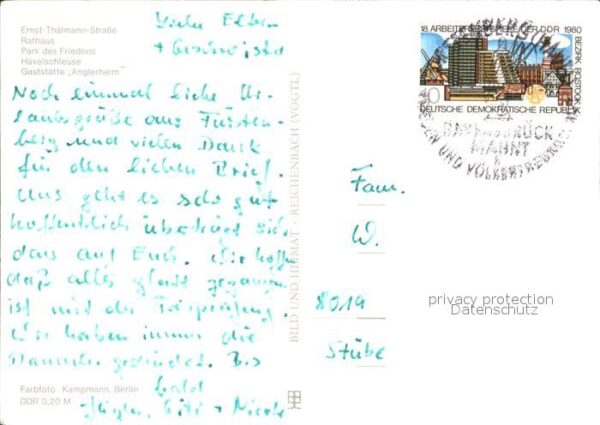 Ernst-Thälmann-Straße
Rathaus
Park des Friedens
Havelschleuse
Gaststätte „Anglerheim"
Liebe Eltern
+ Geschwister
Noch einmal liebe Ur-
laubsgrüße aus Fürsten-
berg und vielen Dank
für den lieben Brief.
Uns geht es sehr gut
hoffentlich überträgt sich
das auf Euch. Wir hoffen
daß alles glatt gegangen
ist mit der Prüfung.
Wir haben immer die
Daumen gedrückt. Bis
bald
+ Nicole
Farbfoto Kampmann, Berlin
DDR 0,20 M
BILD UND HEIMAT · REICHENBACH (VOGTL)
18. ARBEITERFESTSPIELE DER DDR 1980
BEZIRK ROSTOCK
10
DEUTSCHE DEMOKRATISCHE REPUBLIK
RAVENSBRÜCK
MAHNT
UND VÖLKERFREUND
Fam.
W.
8019
Stübe
privacy protection
Datenschutz